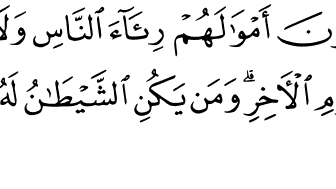 ونَ أَمْوَٰلَهُمْ رِئَآءَ ٱلنَّاسِ وَلَا
مِ ٱلْـَٔاخِرِ ۗ وَمَن يَكُنِ ٱلشَّيْطَـٰنُ لَهُ